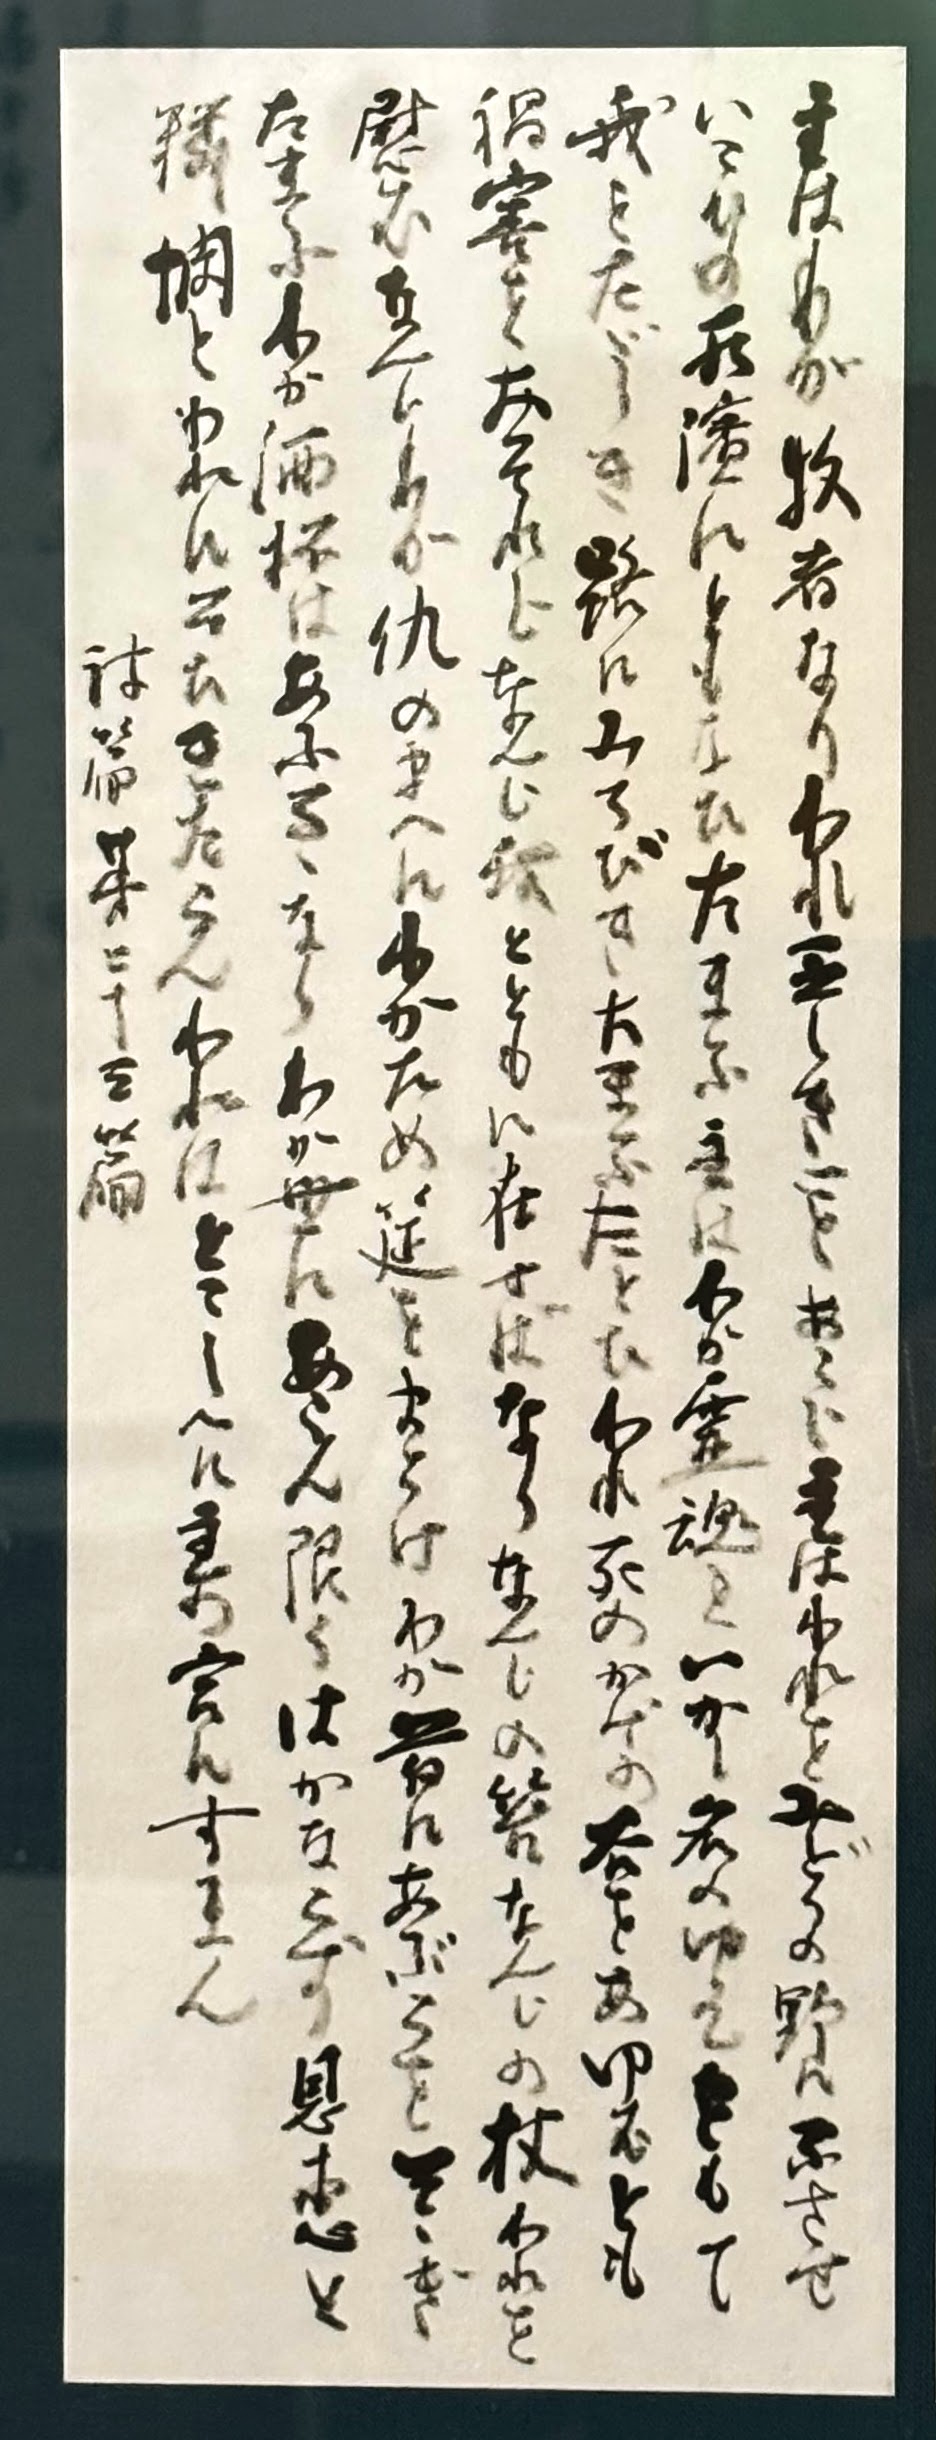 主はわが牧者なりわれ乏しきことあらじ主はわれをみどりの野にふさせ
いこひの水濱にともなひたまふ主はわが霊魂をいかし名のゆゑをもて
我をたゞしき路にみちびきたまふたとひわれ死のかげの谷をあゆむとも
禍害をおそれじなんぢ我とともに在せばなりなんぢの笞なんぢの杖われを
慰むなんぢわが仇のまへにわがため筵をまうけわが首にあぶらをそゝぎ
たまふわが酒杯はあふるゝなりわが世にあらん限りはかならず恩恵と
憐憫とわれにそひきたらんわれはとこしへに主の宮にすまん
詩篇第二十三篇